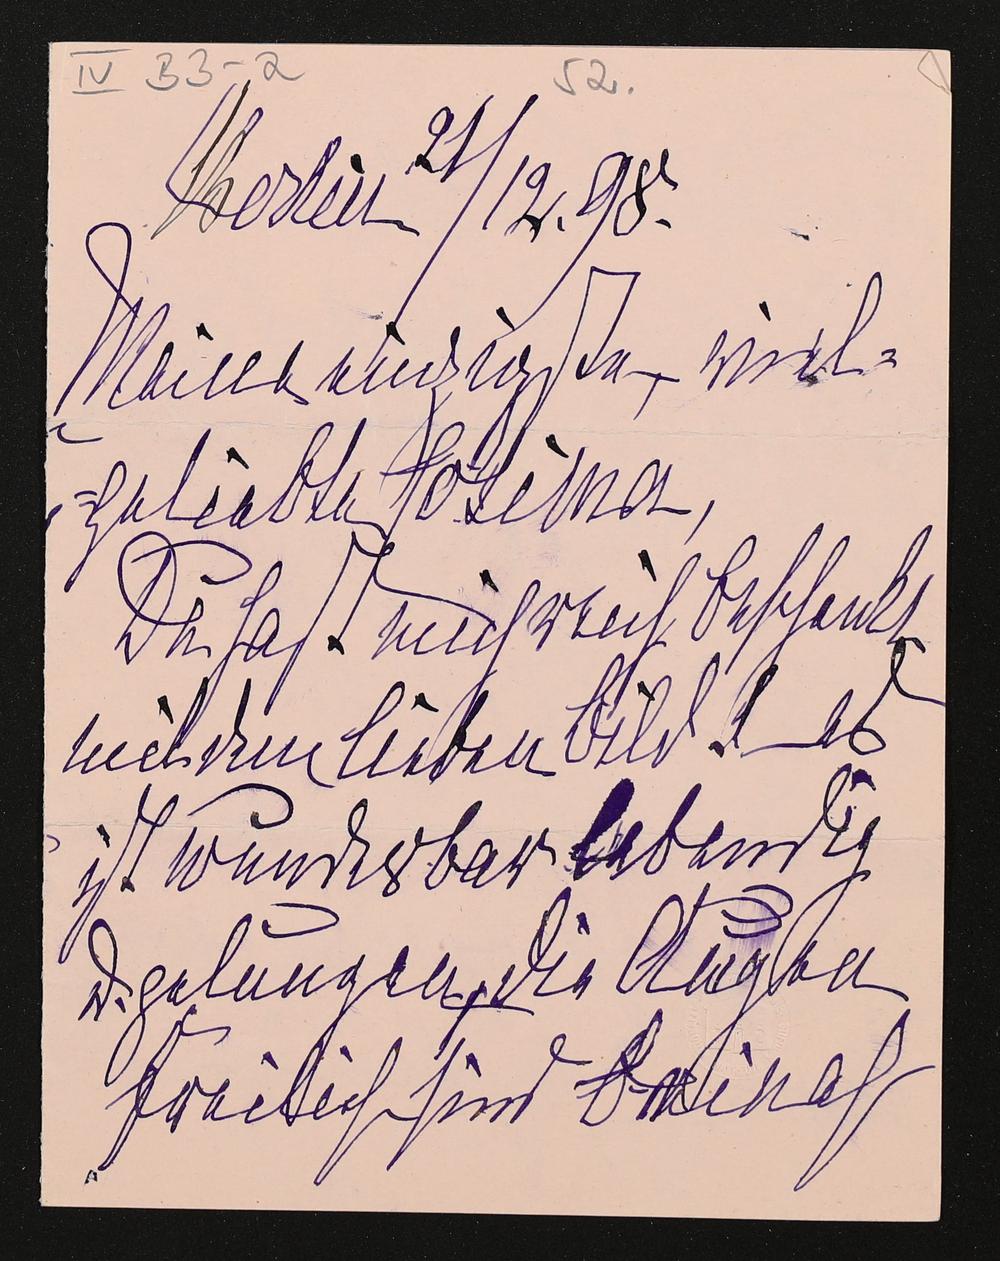 IV B3-2 52.
Berlin 21/12. 98.
Meine einzigste, viel-
=geliebte Cosima,
Du hast mich reich beschenkt
mit dem lieben Bild! es
ist wunderbar lebendig
u. gelungen, die Augen
freilich sind beinah